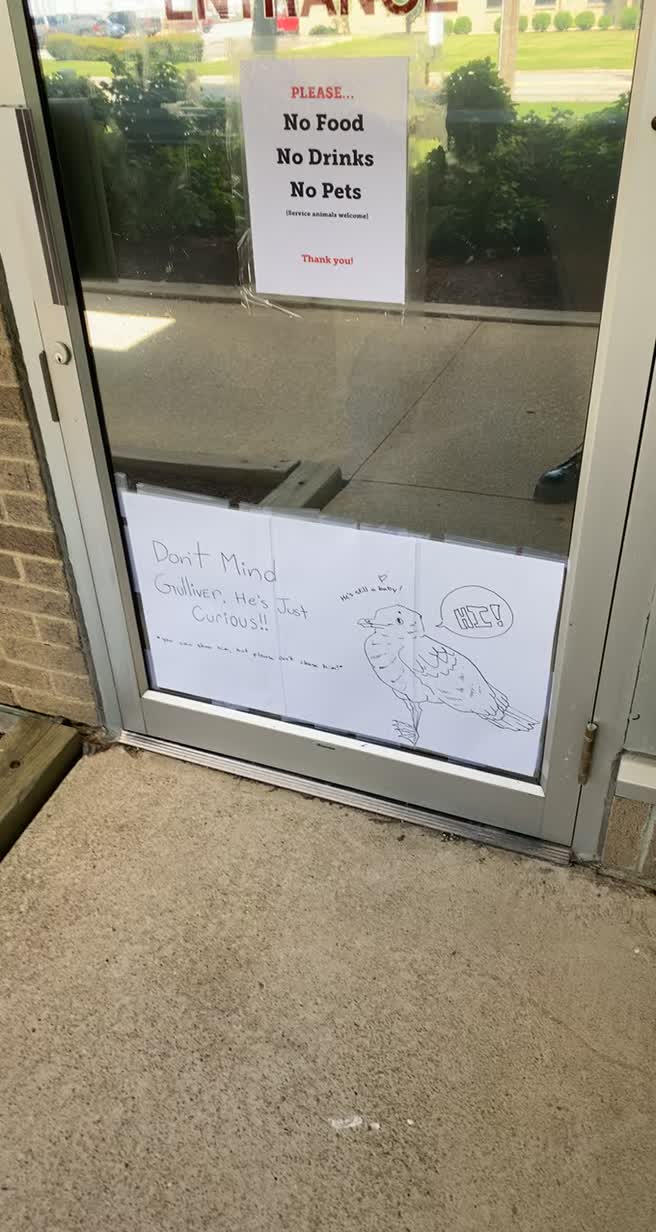 ENTRANCE
PLEASE...
No Food
No Drinks
No Pets
(Service animals welcome)
Thank you!
Don't Mind
Gulliver. He's Just
Curious!!
*you can shoo him, but please don't chase him!*
He's still a baby!
HI!